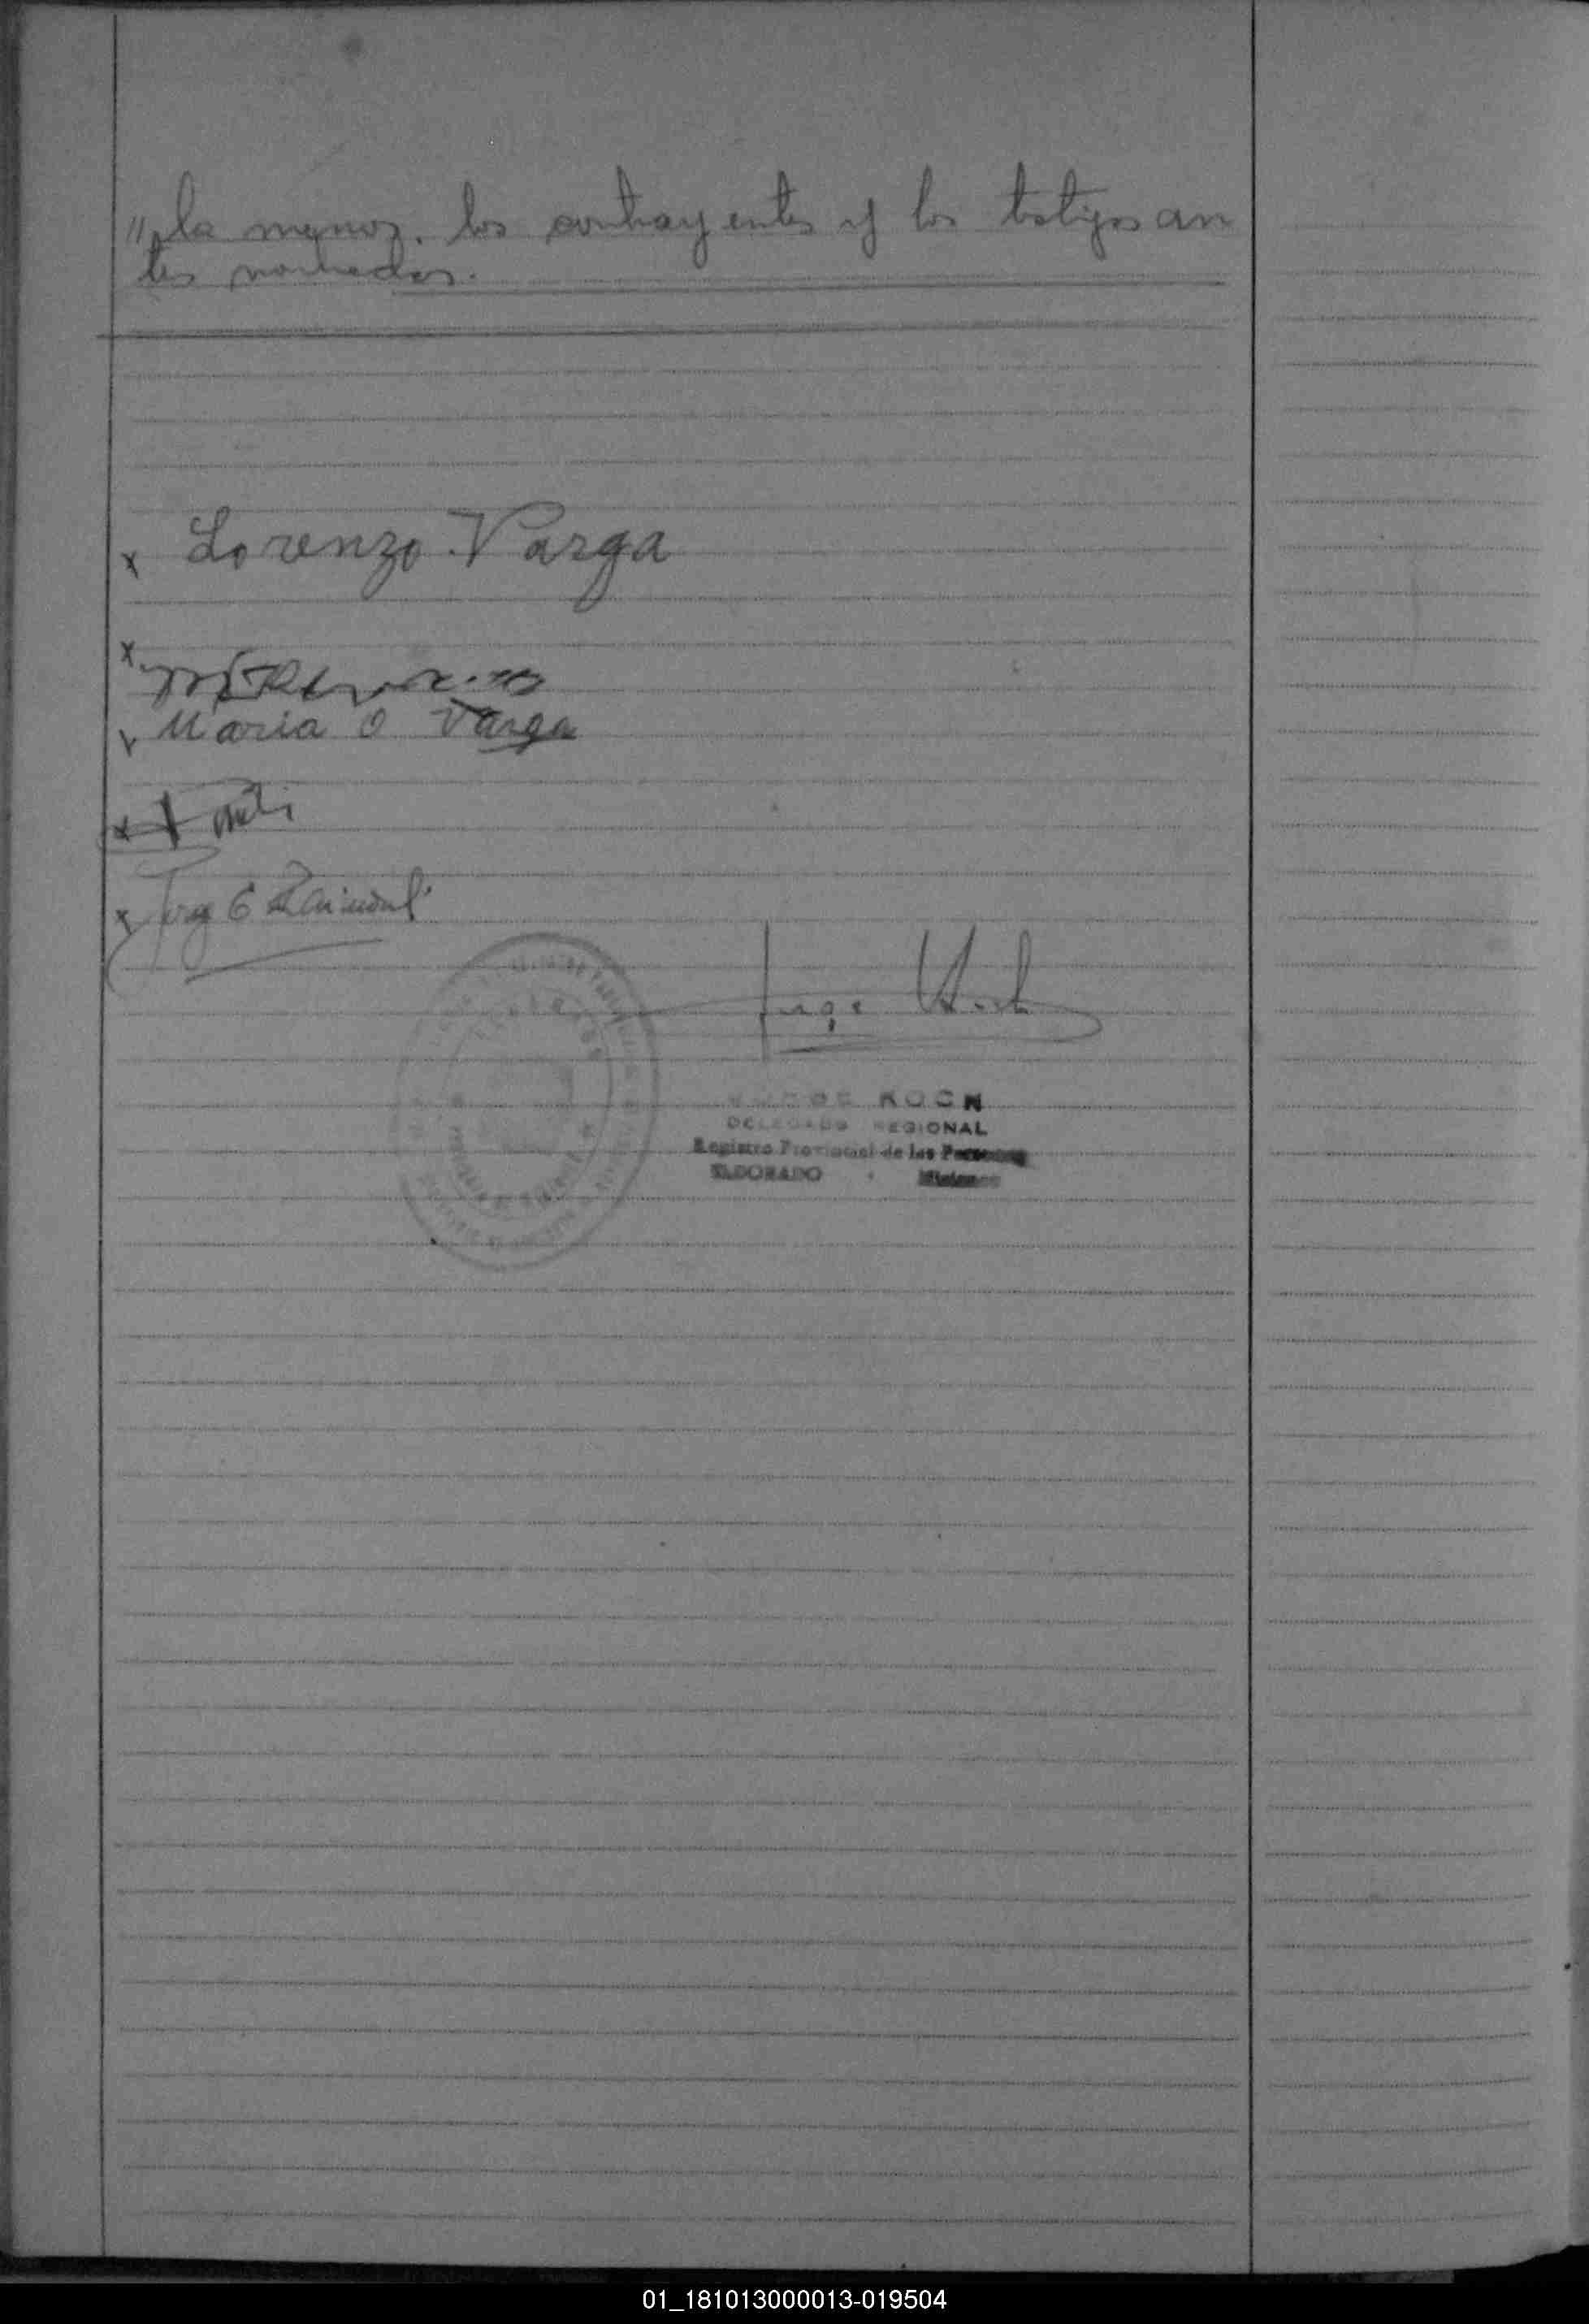 "la menor. los contrayentes y los testigos an
tes nombrados.
x Lorenzo Varga
x
x Maria O Varga
x
x Jorge E
Jorge Koch
JORGE KOCH
DELEGADO REGIONAL
Registro Provincial de las Personas
ELDORADO - Misiones
01_181013000013-019504